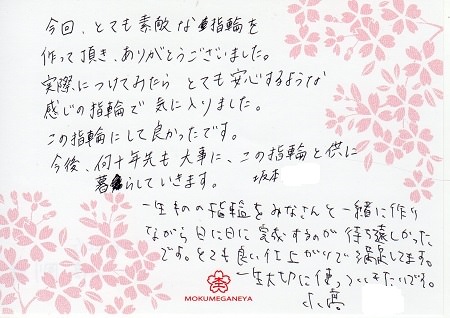 今回、とても素敵な指輪を
作って頂き、ありがとうございました。
実際につけてみたら とても安心するような
感じの指輪で 気に入りました。
この指輪にして良かったです。
今後、何十年先も 大事に、この指輪と供に
暮らしていきます。 坂本
一生ものの指輪をみなさんと一緒に作り
ながら 日に日に完成するのが 待ち遠しかった
です。とても良い仕上がりで 満足してます。
一生大切に使っていきたいです。
MOKUMEGANEYA